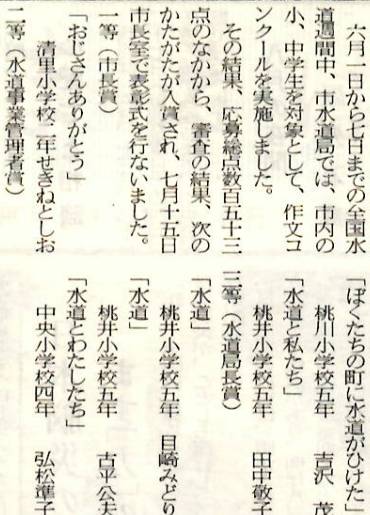 六月一日から七日までの全国水
道週間中、市水道局では、市内の
小、中学生を対象として、作文コ
ンクールを実施しました。
その結果、応募総点数百五十三
点のなかから、審査の結果、次の
かたがたが入賞され、七月十五日
市長室で表彰式を行ないました。
一等（市長賞）
「おじさんありがとう」
清里小学校二年せきねとしお
二等（水道事業管理者賞）
「ぼくたちの町に水道がひけた」
桃川小学校五年 吉沢 茂
「水道と私たち」
桃井小学校五年 田中敬子
三等（水道局長賞）
「水道」
桃井小学校五年 目崎みどり
「水道」
桃井小学校五年 古平公夫
「水道とわたしたち」
中央小学校四年 弘松準子